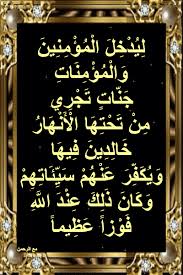 لِيُدْخِلَ الْمُؤْمِنِينَ
وَالْمُؤْمِنَاتِ
جَنَّاتٍ تَجْرِي
مِنْ تَحْتِهَا الْأَنْهَارُ
خَالِدِينَ فِيهَا
وَيُكَفِّرَ عَنْهُمْ سَيِّئَاتِهِمْ
وَكَانَ ذَلِكَ عِنْدَ اللَّهِ
فَوْزاً عَظِيماً
مع الرحمن